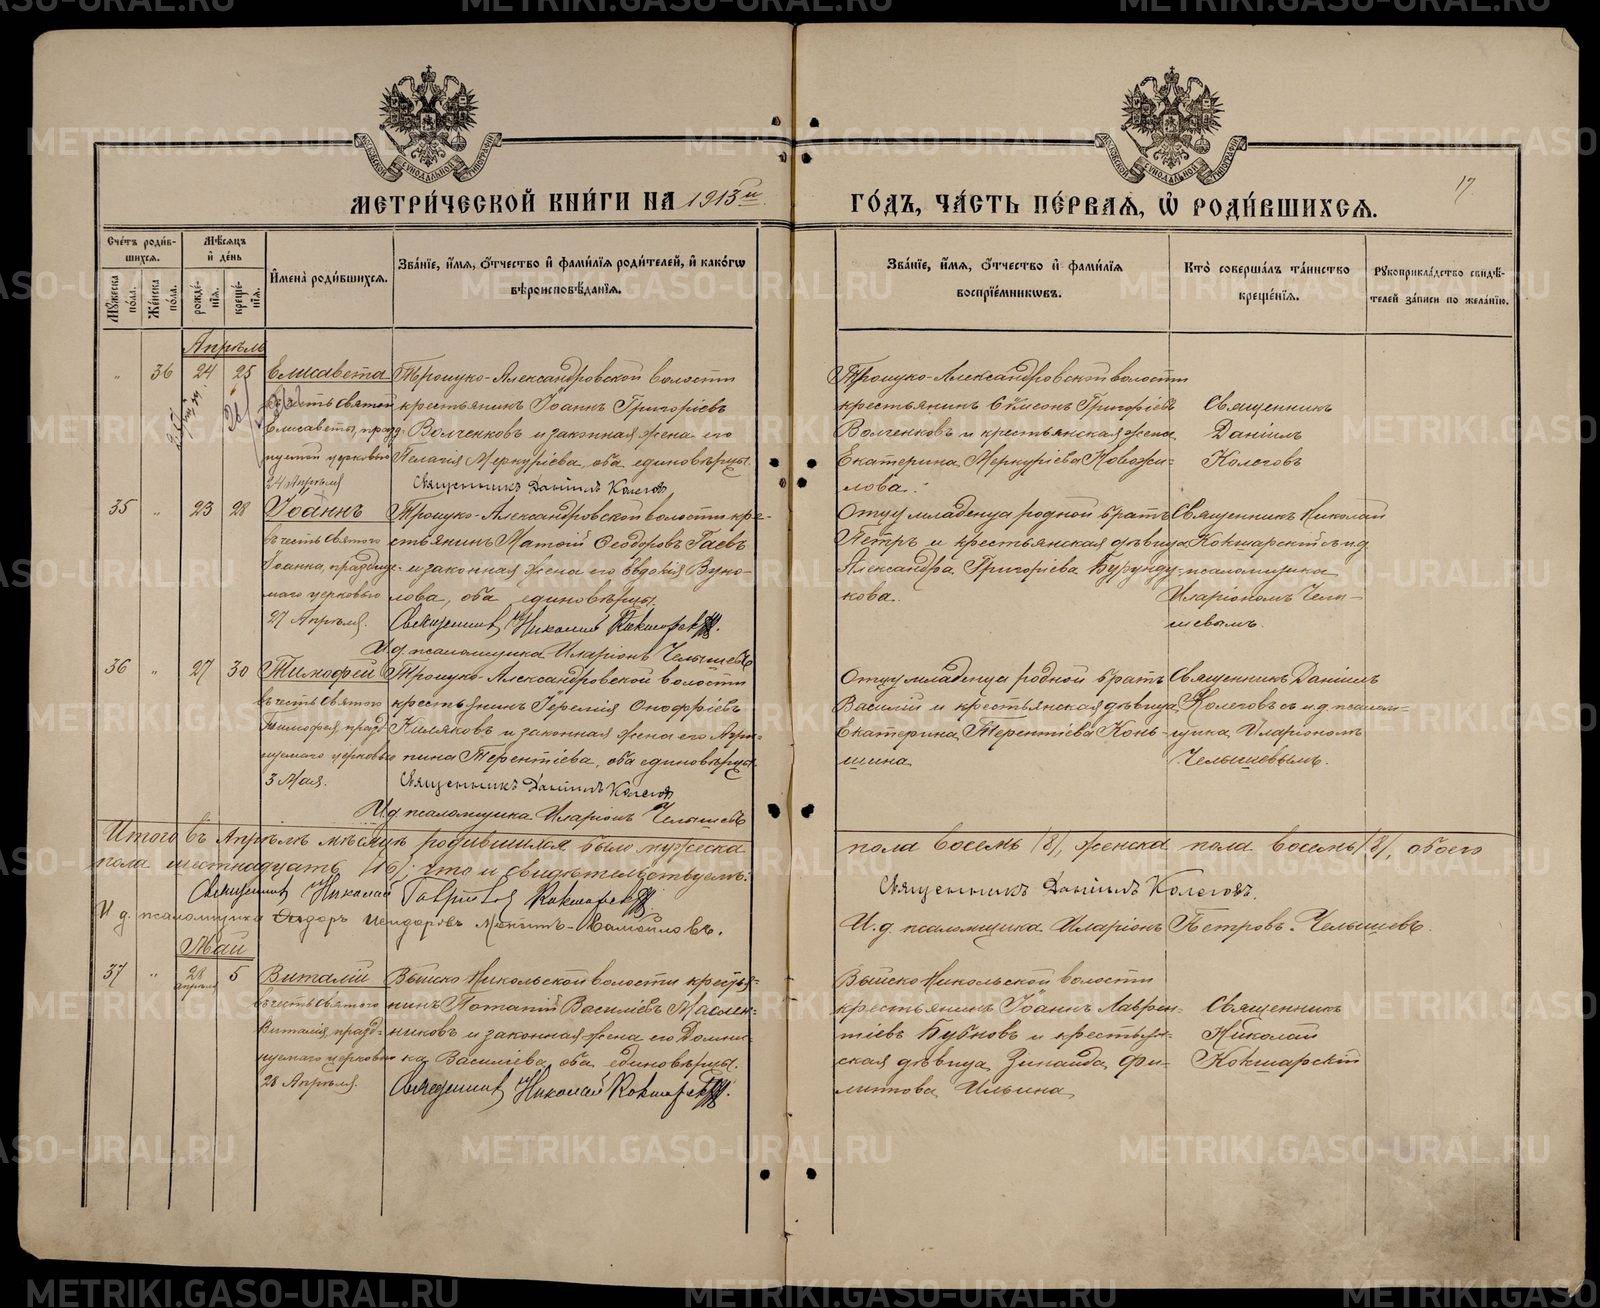 МЕТРИ́ЧЕСКОЙ КНИ́ГИ НА 1913й ГО́ДЪ, ЧА́СТЬ ПЕ́РВАѦ, Ѡ҆ РОДИ́ВШИХСѦ.
17
Сче́тъ роди́в-
шихсѧ.
Мꙋ́жеска по́ла.
Же́нска по́ла.
Мѣ́сѧцъ
и҆ де́нь
рожде́-
нїѧ.
креще́-
нїѧ.
И҆мена̀ роди́вшихсѧ.
Зва́нїе, и҆́мѧ, ѻ҆́тчество и҆ фами́лїѧ роди́телей, и҆ како́гѡ
вѣроисповѣ́данїѧ.
Зва́нїе, и҆́мѧ, ѻ҆́тчество и҆ фами́лїѧ
воспрїе́мникѡвъ.
Кто̀ соверша́лъ та́инство
креще́нїѧ.
Рꙋкоприкла́дство свидѣ́-
телей за́писи по жела́нїю.
Апрѣль
" 36 24 25 Елисавета
въ честь святой
Елисаветы, празд-
нуемой церковью
24 Апрѣля
Троицко-Александровской волости
крестьянинъ Іоаннъ Григоріевъ
Волченковъ и законная жена его
Пелагія Меркуріева, оба единовѣрцы.
Священникъ Даніилъ Колеговъ
Троицко-Александровской волости
крестьянинъ Сѵмеонъ Григоріевъ
Волченковъ и крестьянская жена
Екатерина Меркуріева Новожи-
лова.
Священникъ
Даніилъ
Колеговъ
35 " 23 28 Іоаннъ
въ честь святого
Іоанна, праздну-
маго церковью
27 Апрѣля.
Троицко-Александровской волости кре-
стьянинъ Матөій Ѳеодоровъ Гаевъ
и законная жена его Евдокія Вуко-
лова, оба единовѣрцы.
Священникъ Николай Кокшарскій.
И.д. псаломщика Иларіонъ Челышевъ
Отцу младенца родной братъ
Петръ и крестьянская дѣвица
Александра Григоріева Бурунду-
кова.
Священникъ Николай
Кокшарскій съ и.д.
псаломщика
Иларіономъ Челы-
шевымъ.
36 " 27 30 Тимофей
въ честь святого
Тимофея, празд-
нуемаго церковью
3 Мая.
Троицко-Александровской волости
крестьянинъ Іеремія Онофріевъ
Киляковъ и законная жена его Агри-
пина Терентіева, оба единовѣрцы.
Священникъ Даніилъ Колеговъ
И.д. псаломщика Иларіонъ Челышевъ
Отцу младенца родной братъ
Василій и крестьянская дѣвица
Екатерина Терентіева Конь-
шина
Священникъ Даніилъ
Колеговъ съ и.д. псалом-
щика Иларіономъ
Челышевымъ.
Итого въ Апрѣлѣ мѣсяцѣ родившихся было мужеска пола восемь /8/, женска пола восемь /8/, обоего
пола шестнадцать /16/; что и свидѣтельствуемъ:
Священникъ Николай Гавриловъ Кокшарскій.
Священникъ Даніилъ Колеговъ.
И д. псаломщика Исидоровъ Самойловъ.
И.д. псаломщика Иларіонъ Петровъ Челышевъ.
Май
37 " 28 апрѣля 5 Виталій
въ честь святого
Виталія, празд-
нуемаго церковью
28 Апрѣля.
Выйско Никольской волости крестья-
нинъ Потапій Василіевъ Маслен-
никовъ и законная жена его Домни-
ка Василіева, оба единовѣрцы.
Священникъ Николай Кокшарскій.
Выйско Никольской волости
крестьянинъ Іоаннъ Лаврен-
тіевъ Бубновъ и крестьян-
ская дѣвица Зинаида Фи-
липова Ильина
Священникъ
Николай
Кокшарскій
METRIKI.GASO-URAL.RU